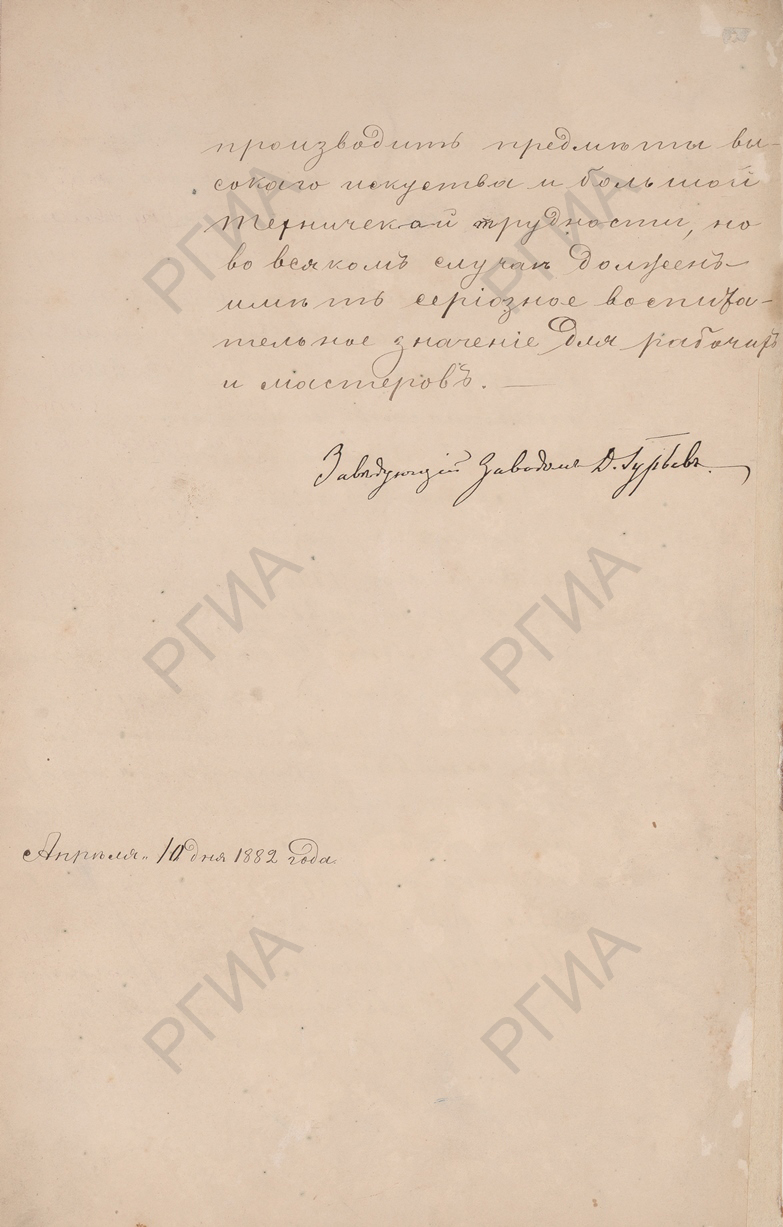 производить предмѣты вы-
сокаго искуства и большой
техническай трудности, но
во всякомъ случаѣ долженъ
имѣть серіозное воспита-
тельное значеніе для рабочихъ
и мастеровъ. —
Завѣдующій Заводомъ Д. Гурьевъ.
Апрѣля „ 10 дня 1882 года.
РГИА
РГИА
РГИА
РГИА
РГИА
РГИА